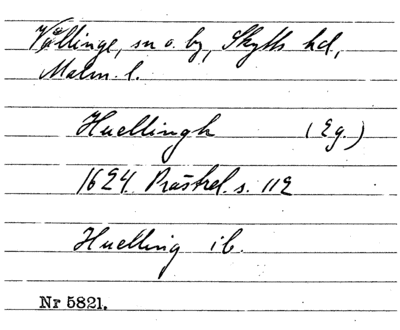 Vällinge, sn o. by, Skytts hd,
Malm. l.
Huellingh (Eg.)
1624 Prästrel. s. 112
Huelling ib.
Nr 5821.